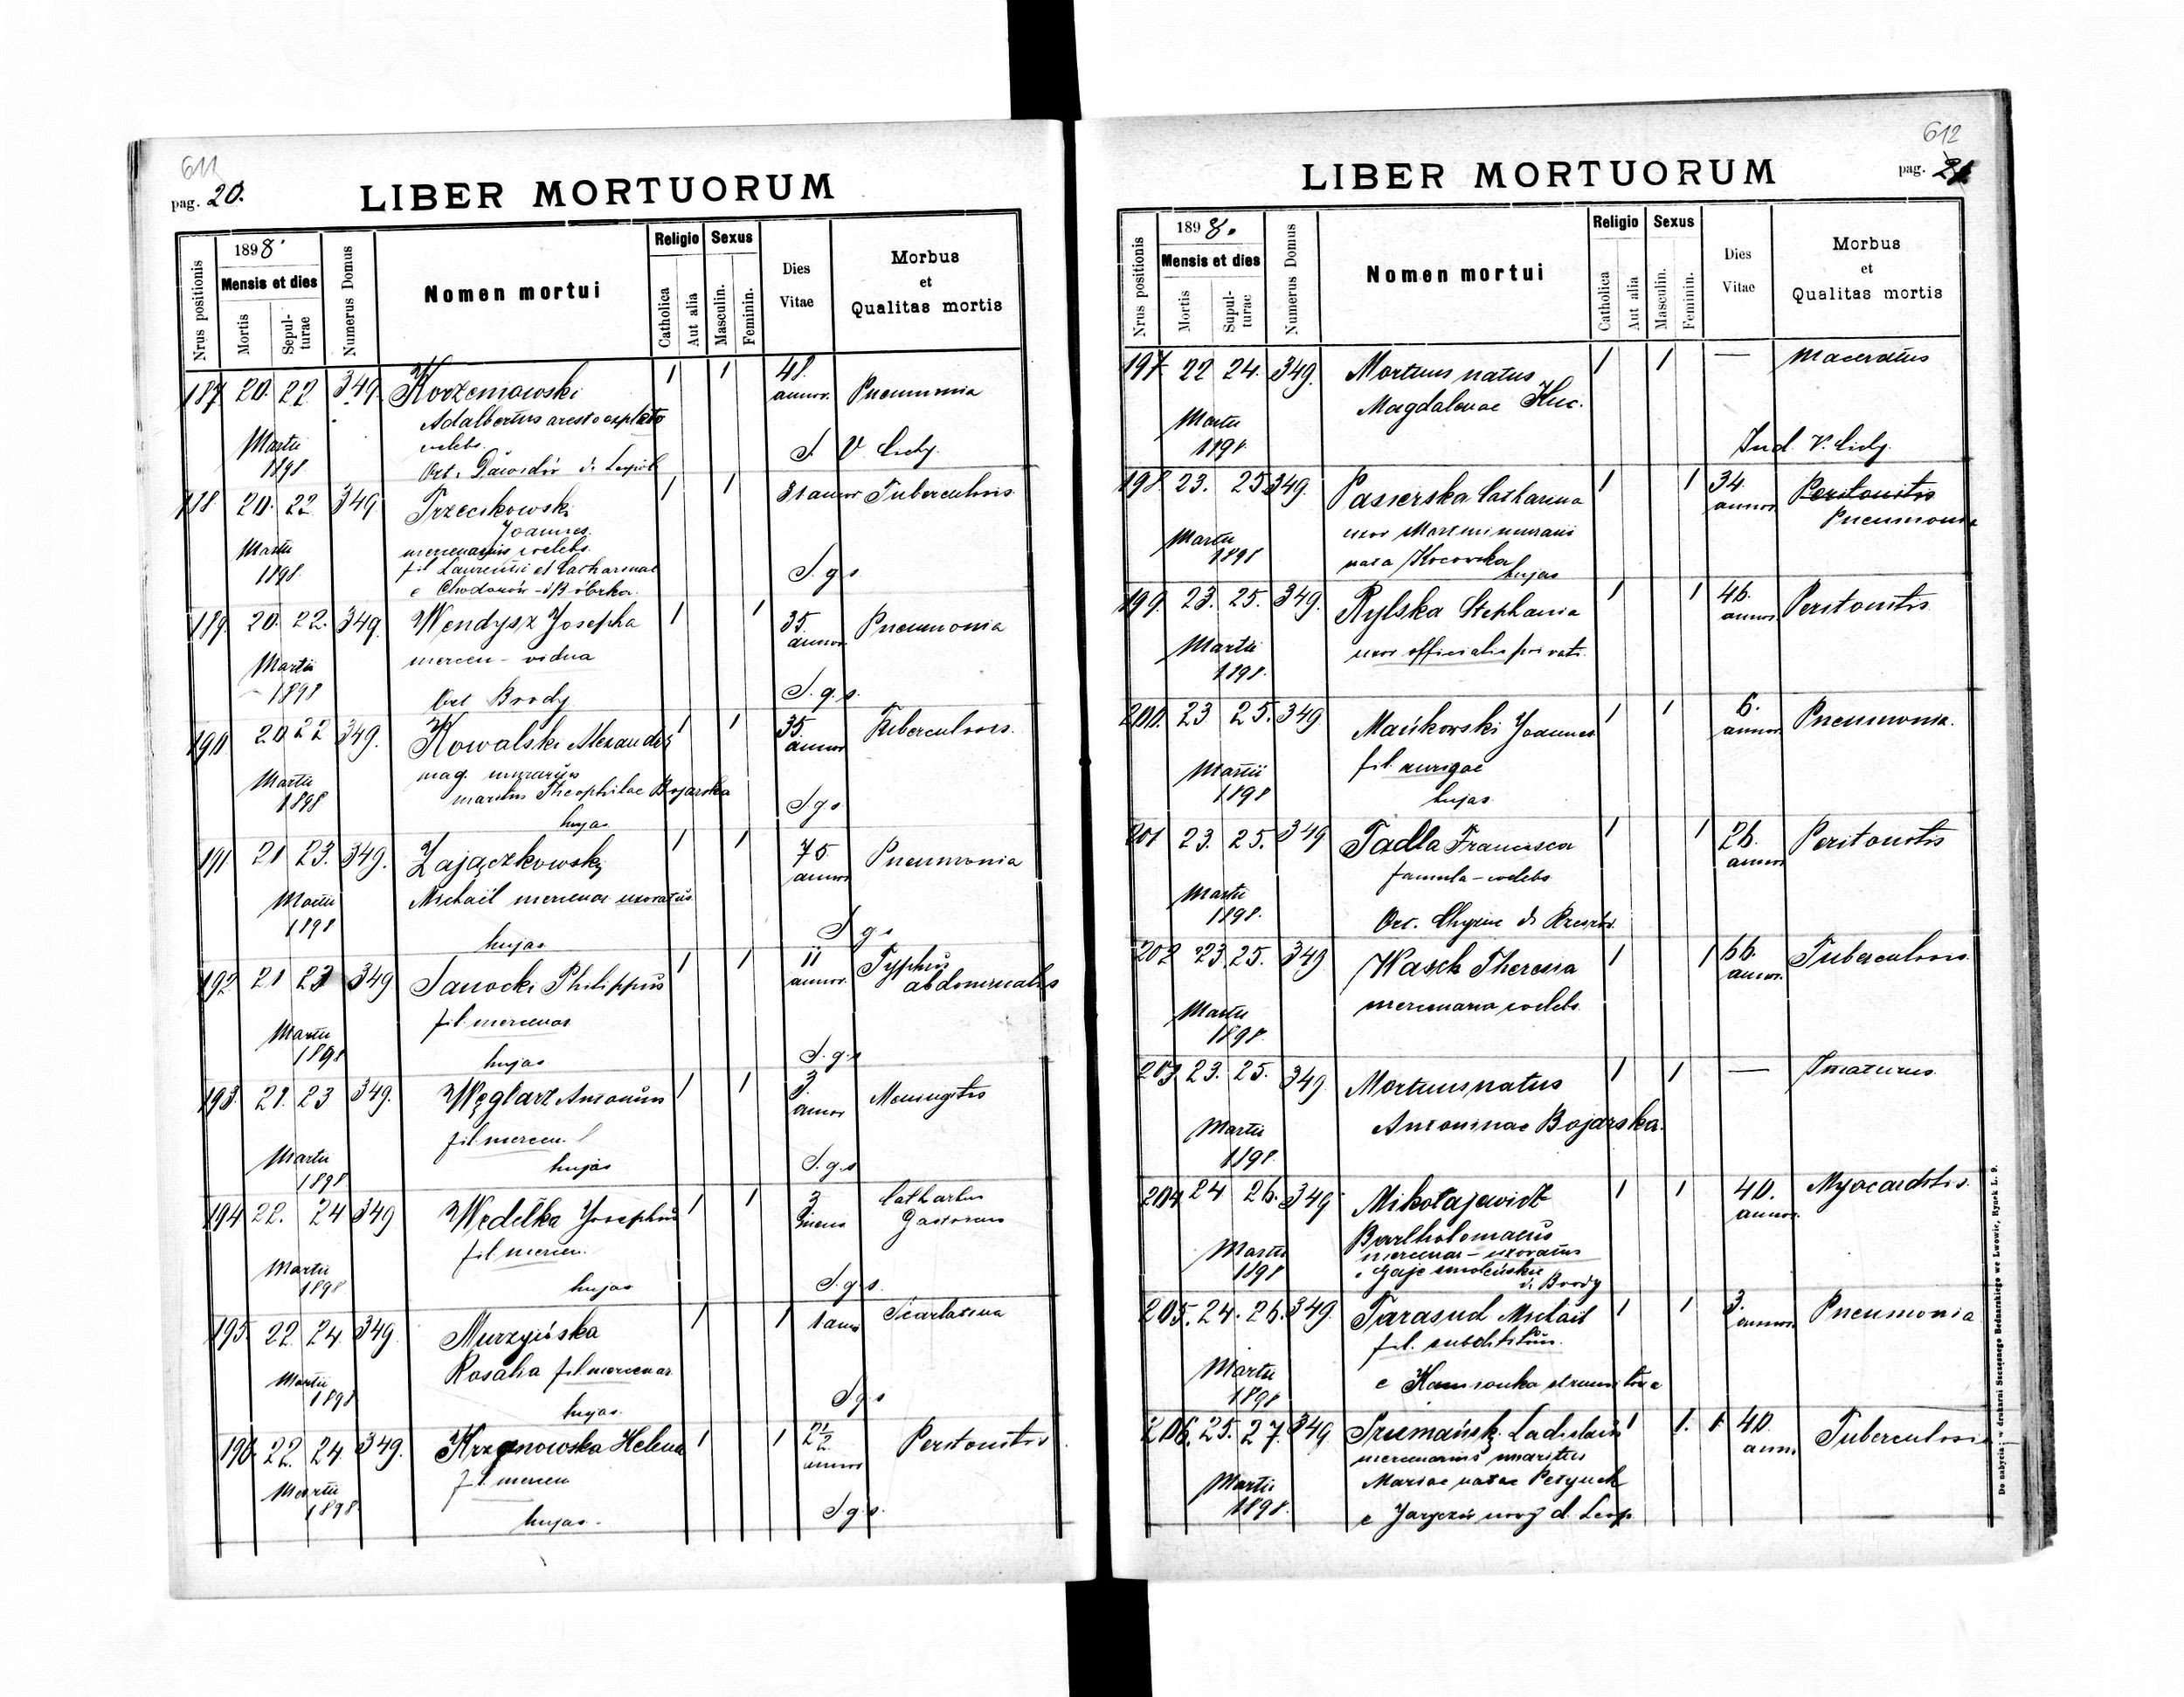 611
pag. 20.
LIBER MORTUORUM
Nrus positionis
1898.
Mensis et dies
Mortis
Sepul-
turae
Numerus Domus
Nomen mortui
Religio
Catholica
Aut alia
Sexus
Masculin.
Feminin.
Dies
Vitae
Morbus
et
Qualitas mortis
187 20. 22 349. Korzeniowski 1 1 48. annor. Pneumonia
Adalbertus
Martii
celebs
1898
188. 20. 22 349 Trzecikowski 1 1 31 annor Tuberculosis
Joannes
mercenarius coelebs.
Martii
fil Laurentii et Catharinae
1898. S. g. s
189. 20. 22. 349. Wendysz Josepha 1 1 35. annor Pneumonia
Martii mercen - vidua
1898 S. g. s.
Ort Brody
190 20 22 349. Kowalski Alexander 1 1 35. annor Tuberculosis.
Martii mag. murarius
maritus Theophilae Bojarska
1898 S g s
hujas
191 21 23. 349. Zajączkowski 1 1 75 annor Pneumonia
Martii Michaël mercenar uxoratus
1898 S g s
hujas
192. 21 23 349 Sanocki Philippus 1 1 11 annor. Typhus
abdominalis
fil. mercenar
Martii
1898 hujas S. g. s
193. 21. 23 349. Węglarz Antonius 1 1 3. annor Meningitis
fil. mercen.
Martii hujas S. g. s
1898
194 22. 24 349 Wędełka Josephus 1 1 3 mens Catharhus
fil. mercen.
Martii
1898 hujas S. g. s.
195 22. 24. 349. Murzyńska 1 1 1 anno Scarlatina
Rosalia fil. mercenar
Martii
1898 hujas. S g s
196. 22. 24. 349. Krzanowska Helena 1 1 2½ annor Peritonitis
fil. mercen
Martii
1898 hujas. S. g. s.
612
pag. 21
LIBER MORTUORUM
Nrus positionis
1898.
Mensis et dies
Mortis
Supul-
turae
Numerus Domus
Nomen mortui
Religio
Catholica
Aut alia
Sexus
Masculin.
Feminin.
Dies
Vitae
Morbus
et
Qualitas mortis
197 22 24. 349. Mortuus natus 1 1 — Maceratus
Magdalenae Kuc.
Martii
1898.
198. 23. 25 349. Pasierska Catharina 1 1 34 annor Peritonitis
Pneumonia
Martii uxor Martini murarii
1898 nata Kocowska
hujas
199. 23. 25. 349. Rylska Stephania 1 1 46. annor. Peritonitis
Martii uxor officialis privati.
1898.
200. 23 25. 349 Mańkowski Joannes 1 1 6. annor Pneumonia.
Martii fil. aurigae
1898 hujas
201 23. 25. 349 Tadla Francisca 1 1 26. annor Peritonitis
famula - coelebs
Martii
1898.
202 23. 25. 349 Wasch Theresia 1 1 66. annor. Tuberculosis.
mercenaria coelebs.
Martii
1898.
203 23. 25. 349 Mortuus natus 1 1 — Imaturus.
Antoninae Bojarska.
Martii
1898.
204 24 26. 349 Mikołajewicz 1 1 40. annor. Myocarditis.
Bartholomaeus
Martii mercenar - uxoratus
1898 e Gaje smoleńskie
d. Brody
205. 24. 26. 349. Tarasud Michaël 1 1 3. annor. Pneumonia
Martii
1898 e Kamionka
206. 25. 27. 349 Ladislaus 1 1. 1 40 ann. Tuberculosis
mercenarius maritus
Martii Mariae natae Petynch
1898. e Jaryczów nowy d. Leop.
Do nabycia : w drukarni Szczęsnego Bednarskiego we Lwowie, Rynek L. 9.